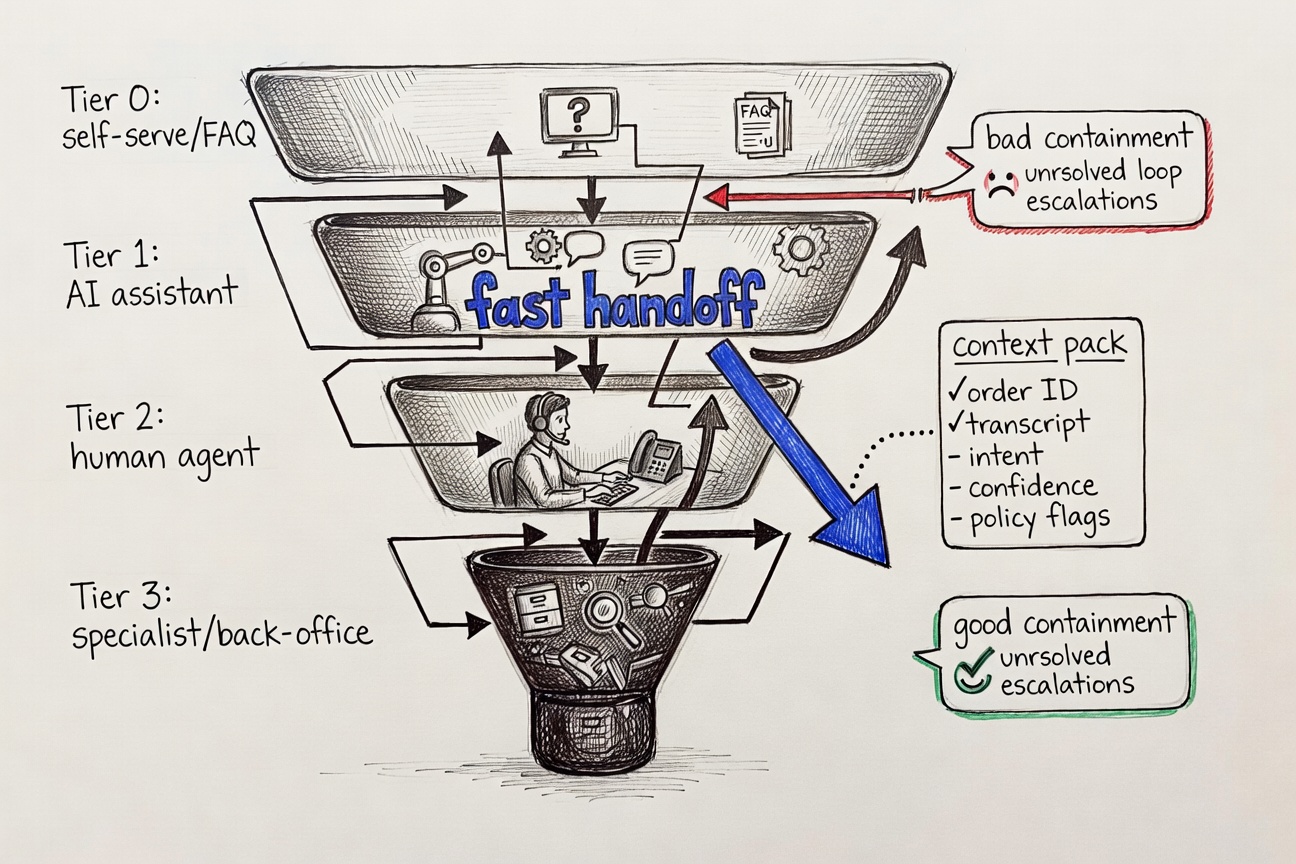 Tier 0:
self-serve/FAQ
?
FAQ
bad containment
unrsolved loop
escalations
Tier 1:
AI assistant
fast handoff
context pack
✓order ID
✓transcript
- intent
- confidence
- policy flags
Tier 2:
human agent
Tier 3:
specialist/back-office
good containment
unrsolved
escalations